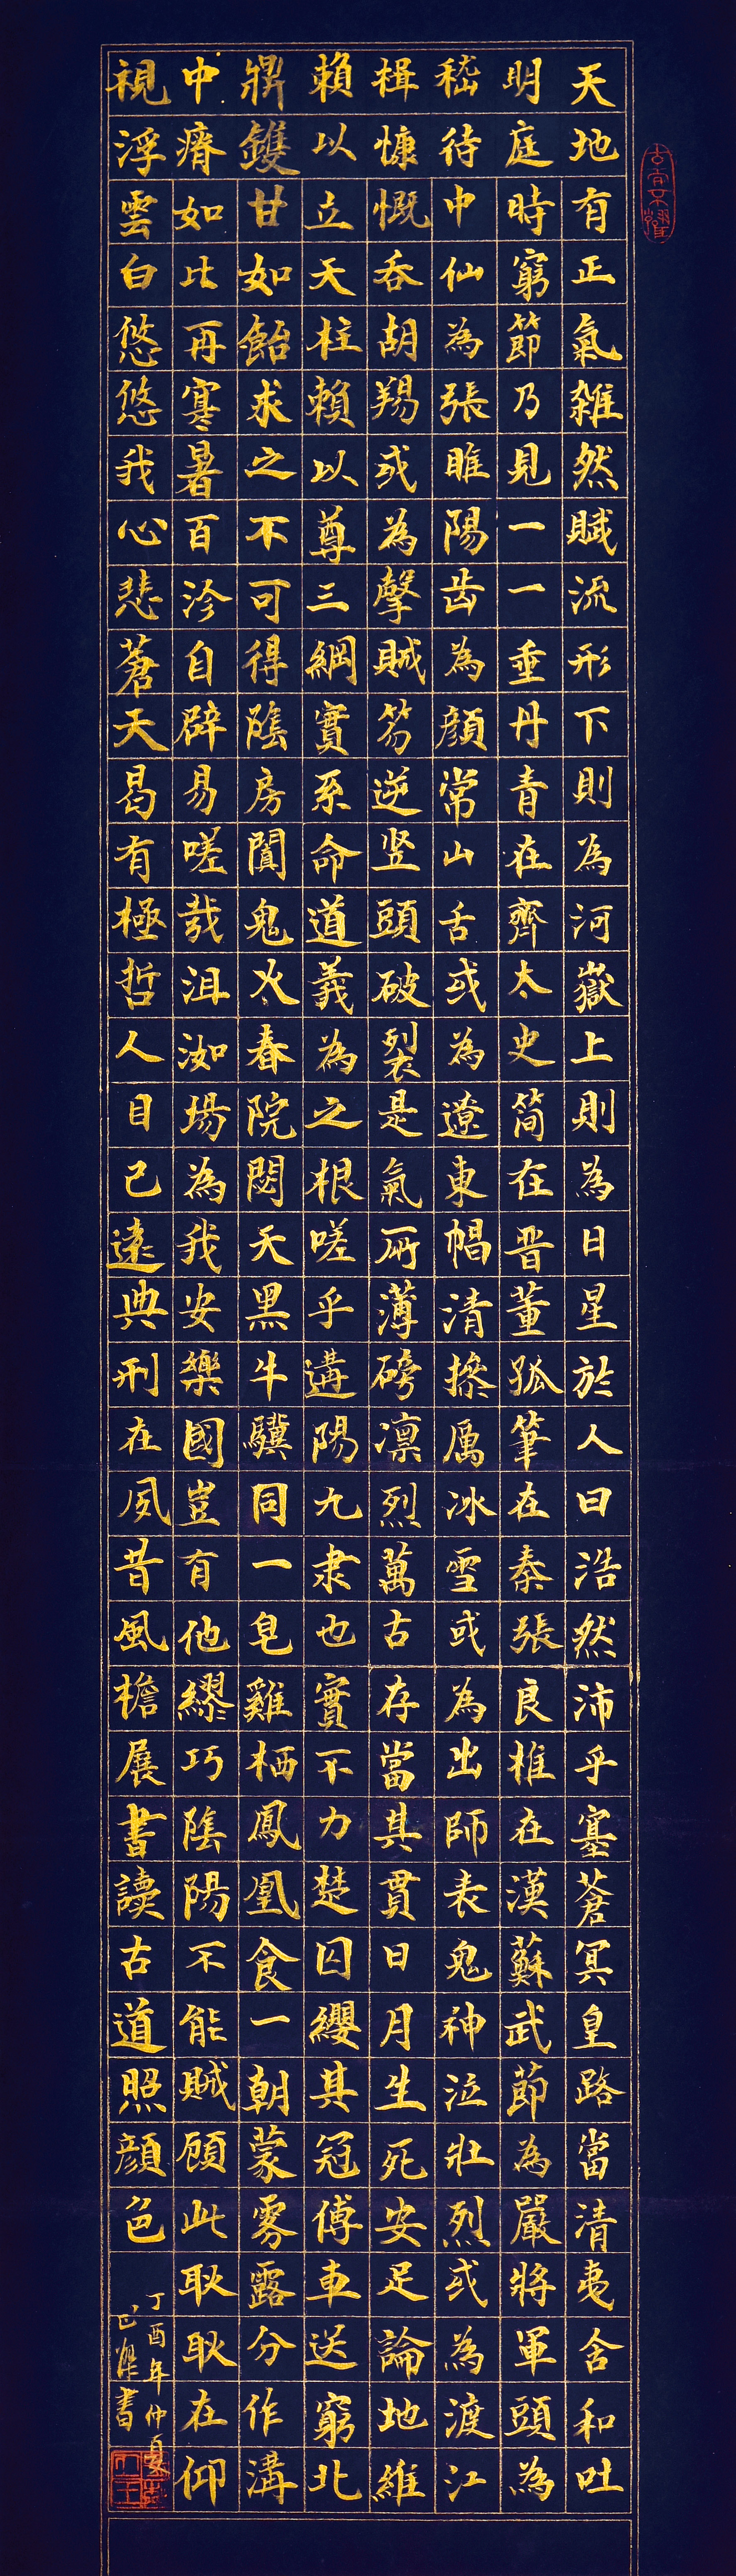 天地有正氣雜然賦流形下則為河嶽上則為日星於人曰浩然沛乎塞蒼冥皇路當清夷含和吐
明庭時窮節乃見一一垂丹青在齊太史简在晋董孤筆在秦張良椎在漢蘇武節為嚴將軍頭為
嵇待中仙為張睢陽齿為顔常山舌或為遼東帽清操厲冰雪或為出師表鬼神泣壯烈或為渡江
楫慷慨吞胡羯或為擊賊笏逆竖頭破裂是氣所薄磅凛烈萬古存當其貫日月生死安足論地維
賴以立天柱賴以尊三綱實系命道義為之根嗟乎遘陽九隶也實不力楚囚纓其冠傅車送窮北
鼎鑊甘如飴求之不可得陰房闐鬼火春院閟天黑牛驥同一皂雞栖鳳凰食一朝蒙雾露分作溝
中瘠如比再寒暑百沴自辟易嗟哉沮洳場為我安樂國豈有他繆巧陰陽不能賊顧此耿耿在仰
視浮雲白悠悠我心悲蒼天曷有極哲人日已遠典刑在夙昔風檐展書讀古道照顔色
丁酉年仲夏
書